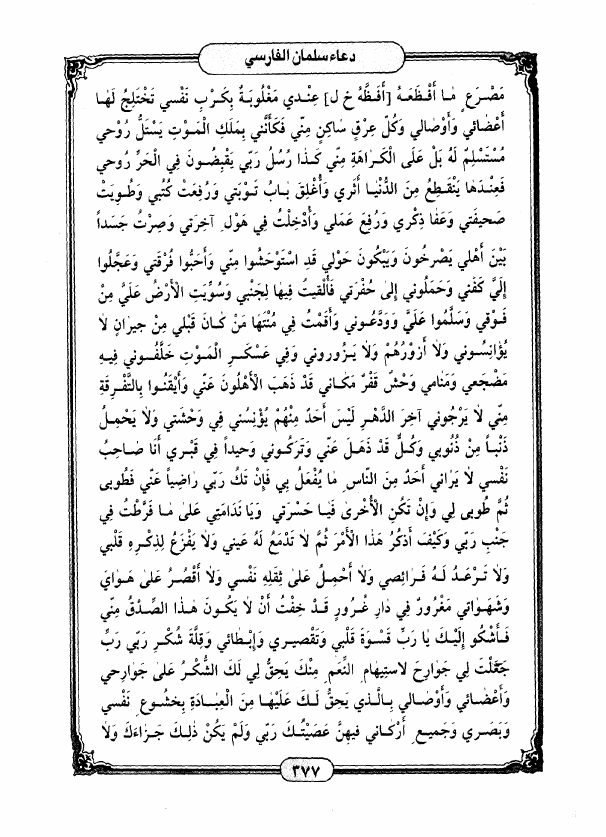 دعاء سلمان الفارسي
مَصْرَعٍ مَا أَفْظَعَهُ [أَفَظَّهُ خ ل] عِنْدي مَغْلُوبَةٌ بِكَرْبِ نَفْسي تَخْتَلِجُ لَهَا
أَعْضَائي وَأَوْصَالي وَكُلُّ عِرْقٍ سَاكِنٍ مِنّي فَكَأَنَّني بِمَلَكِ الْمَوْتِ يَسْتَلُّ رُوْحي
مُسْتَسْلِمٌ لَهُ بَلْ عَلَى الْكَرَاهَةِ مِنّي كَذَا رُسُلُ رَبّي يَقْبِضُونَ فِي الْحَرِّ رُوحي
فَعِنْدَهَا يَنْقَطِعُ مِنَ الدُّنْيَا أَثَري وَأُغْلِقَ بَابُ تَوْبَتي وَرُفِعَتْ كُتُبي وَطُوِيَتْ
صَحيفَتي وَعَفَا ذِكْري وَرُفِعَ عَمَلي وَأُدْخِلْتُ فِي هَوْلِ آخِرَتي وَصِرْتُ جَسَداً
بَيْنَ أَهْلي يَصْرُخُونَ وَيَبْكُونَ حَوْلي قَدِ اسْتَوْحَشُوا مِنّي وَأَحَبُّوا فُرْقَتي وَعَجَّلُوا
إِلَيَّ كَفَني وَحَمَلُوني إِلى حُفْرَتي فَأُلْقيتُ فيهَا لِجَنْبي وَسُوِّيَتِ الْأَرْضُ عَلَيَّ مِنْ
فَوْقي وَسَلَّمُوا عَلَيَّ وَوَدَّعُوني وَأَقَمْتُ فِي مُنْتَهَا مَنْ كَانَ قَبْلي مِنْ جيرَانٍ لَا
يُؤَانِسُوني وَلَا أَزُورُهُمْ وَلَا يَزُورُوني وَفي عَسْكَرِ الْمَوْتِ خَلَّفُوني فيهِ
مَضْجَعي وَمَنَامي وَحْشٌ قَفْرٌ مَكَاني قَدْ ذَهَبَ الْأَهْلُونَ عَنّي وَأَيْقَنُوا بِالتَّفْرِقَةِ
مِنّي لَا يَرْجُوني آخِرَ الدَّهْرِ لَيْسَ أَحَدٌ مِنْهُمْ يُؤْنِسُني فِي وَحْشَتي وَلَا يَحْمِلُ
ذَنْباً مِنْ ذُنُوبي وَكُلٌّ قَدْ ذَهَلَ عَنّي وَتَرَكُوني وَحيداً فِي قَبْري أَنَا صَاحِبُ
نَفْسي لَا يَرَاني أَحَدٌ مِنَ النَّاسِ مَا يُفْعَلُ بي فَإِنْ تَكُ رَبّي رَاضِياً عَنّي فَطُوبى
ثُمَّ طُوبى لي وَإِنْ تَكُنِ الْأُخْرى فَيَا حَسْرَتي وَيَا نَدَامَتي عَلى مَا فَرَّطْتُ فِي
جَنْبِ رَبّي وَكَيْفَ أَذْكُرُ هَذَا الْأَمْرَ ثُمَّ لَا تَدْمَعُ لَهُ عَيني وَلَا يَفْزَعُ لِذِكْرِهِ قَلْبي
وَلَا تَرْعَدُ لَهُ فَرَائِصي وَلَا أَحْمِلُ عَلى ثِقْلِهِ نَفْسي وَلَا أَقْصُرُ عَلى هَوَايَ
وَشَهَوَاتي مَغْرُورٌ فِي دَارِ غُرُورٍ قَدْ خِفْتُ أَنْ لَا يَكُونَ هَذَا الصِّدْقُ مِنّي
فَأَشْكُو إِلَيْكَ يَا رَبِّ قَسْوَةَ قَلْبي وَتَقْصيري وَإِبْطَائي وَقِلَّةَ شُكْرِ رَبّي رَبِّ
جَعَلْتَ لي جَوَارِحَ لِاسْتيهَامِ النِّعَمِ مِنْكَ يَحِقُّ لي لَكَ الشُّكْرُ عَلى جَوَارِحي
وَأَعْضَائي وَأَوْصَالي بِالَّذي يَحِقُّ لَكَ عَلَيْهَا مِنَ الْعِبَادَةِ بِخُشُوعِ نَفْسي
وَبَصَري وَجَميعِ أَرْكَاني فيهِنَّ عَصَيْتُكَ رَبّي وَلَمْ يَكُنْ ذلِكَ جَزَاءَكَ وَلَا
٣٧٧